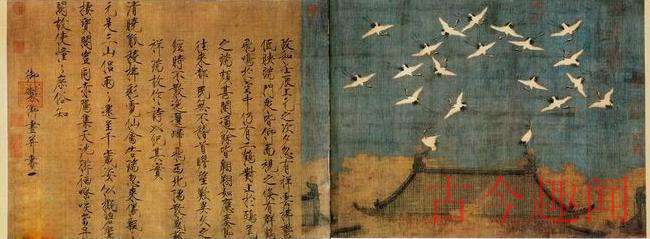 政和壬辰上元之次夕忽有祥雲拂鬱
低映端門眾皆仰而視之倏有群鶴
飛鳴於空中仍有二鶴對止於鴟尾
之端頗甚閒適餘皆翱翔如應奏節
往來都民無不稽首瞻望歎異久之
經時不散迤邐歸飛西北隅散感茲
祥瑞故作詩以紀其實
清曉觚稜拂彩霓仙禽告瑞忽來儀飄飄
元是三山侶兩兩還呈千歲姿似擬碧鸞
棲寶閣豈同赤雁集天池徘徊嘹唳當丹
闕故使憧憧庶俗知
御製御畫并書
古今趣闻